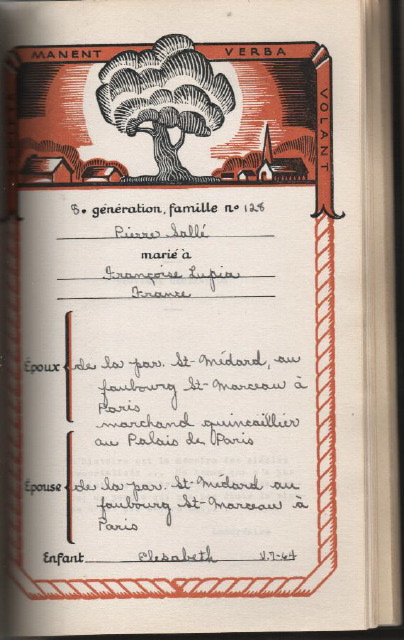 MANENT VERBA
VOLANT
8e génération, famille no 128
Pierre Sallé
marié à
Françoise Lupia
France
Époux de la par. St-Médard, au
faubourg St-Marceau à
Paris
marchand quincaillier
au Palais de Paris
Épouse de la par. St-Médard au
faubourg St-Marceau à
Paris
Enfant Elesabeth V.7-64